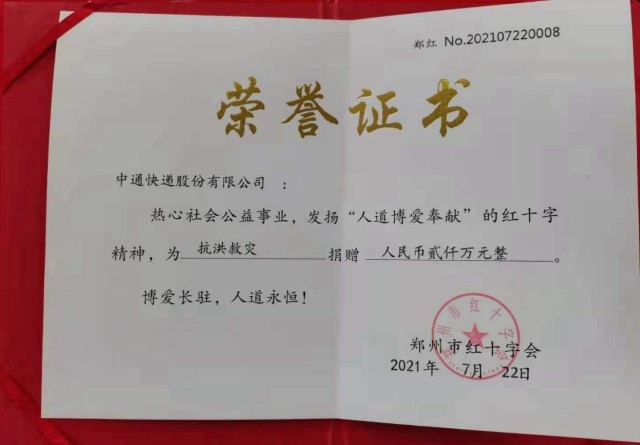 郑红 No.202107220008
荣誉证书
中通快递股份有限公司 :
热心社会公益事业，发扬“人道博爱奉献”的红十字
精神，为 抗洪救灾 捐赠 人民币贰仟万元整 。
博爱长驻，人道永恒！
郑州市红十字会
郑州市红十字会
2021年 7月 22日